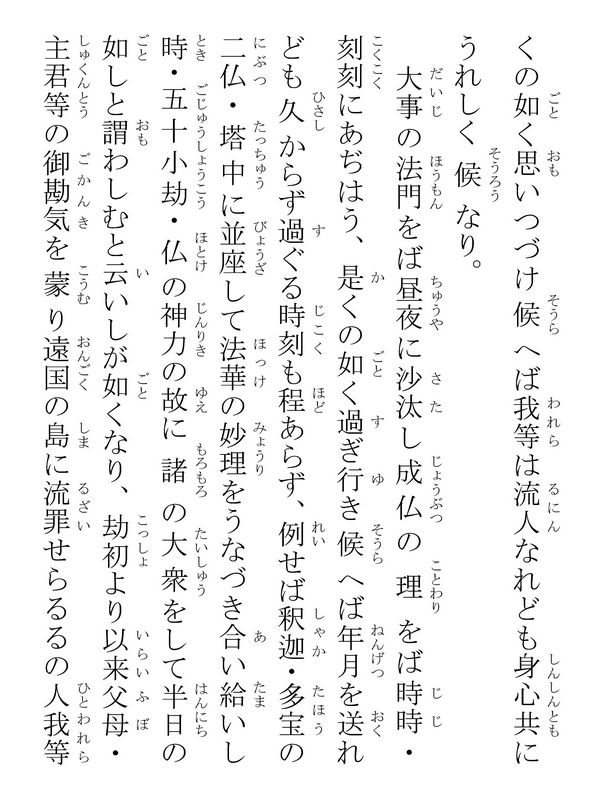 くの如く思いつづけ候へば我等は流人なれども身心共に
うれしく候なり。
大事の法門をば昼夜に沙汰し成仏の理をば時時・
刻刻にあぢはう、是くの如く過ぎ行き候へば年月を送れ
ども久からず過ぐる時刻も程あらず、例せば釈迦・多宝の
二仏・塔中に並座して法華の妙理をうなづき合い給いし
時・五十小劫・仏の神力の故に諸の大衆をして半日の
如しと謂わしむと云いしが如くなり、劫初より以来父母・
主君等の御勘気を蒙り遠国の島に流罪せらるるの人我等